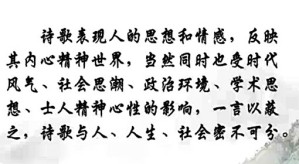 诗歌表现人的思想和情感，反映
其内心精神世界，当然同时也受时代
风气、社会思潮、政治环境、学术思
想、士人精神心性的影响，一言以蔽
之，诗歌与人、人生、社会密不可分。